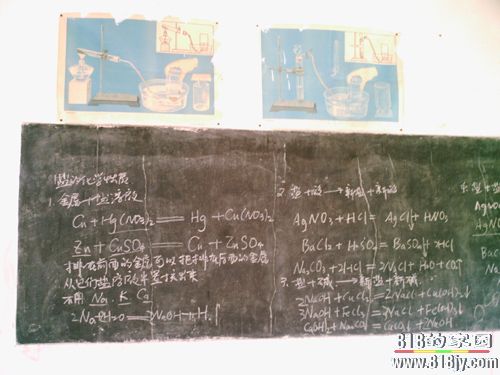 盐的化学性质
1. 金属+盐溶液
Cu + Hg(NO3)2 = Hg + Cu(NO3)2
Zn + CuSO4 = Cu + ZnSO4
排在前面的金属可以把排在后面的金属
从它们盐溶液中置换出来
不用 Na、K Ca
2Na+2H2O = 2NaOH+H2↑
2. 盐+酸 → 新盐+新酸
AgNO3 + HCl = AgCl↓ + HNO3
BaCl2 + H2SO4 = BaSO4↓ + HCl
Na2CO3 + 2HCl = 2NaCl + H2O + CO2↑
3. 盐+碱 → 新盐+新碱
2NaOH + CuCl2 = 2NaCl + Cu(OH)2↓
3NaOH + FeCl3 = 3NaCl + Fe(OH)3↓
Ca(OH)2 + Na2CO3 = CaCO3↓ + 2NaOH
AgNO
818的家园
www.818jy.com